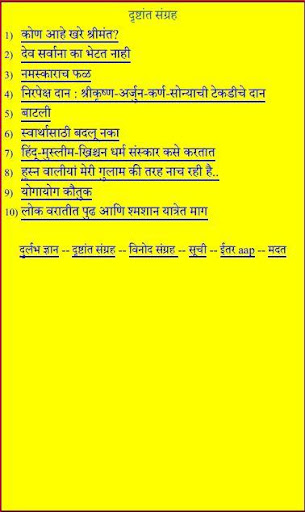 दृष्टांत संग्रह
1) कोण आहे खरे श्रीमंत?
2) देव सर्वाना का भेटत नाही
3) नमस्काराच फळ
4) निरपेक्ष दान : श्रीकृष्ण-अर्जुन-कर्ण-सोन्याची टेकडीचे दान
5) बाटली
6) स्वार्थासाठी बदलू नका
7) हिंदू-मुस्लीम-ख्रिश्चन धर्म संस्कार कसे करतात
8) हुस्न वालीयां मेरी गुलाम की तरह नाच रही है..
9) योगायोग कौतुक
10) लोक वरातीत पुढ आणि श्मशान यात्रेत माग
दुर्लभ ज्ञान -- दृष्टांत संग्रह -- विनोद संग्रह -- सूची -- ईतर aap -- मदत